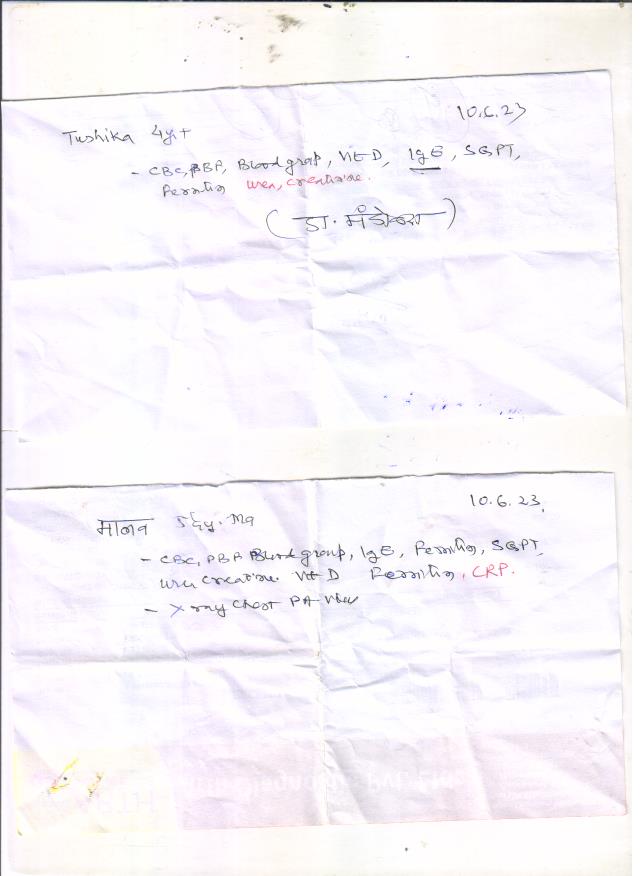 10.6.23
Tushika 4y.
- CBC, PBP, Blood grop, Vit D, IgE, SGPT,
Ferritin urea, creatinine.
(डा.
10.6.23.
मानव
- CBC, PBP Blood group, IgE, Ferritin, SGPT,
urea creatine. Vit D Ferritin, CRP.
- X ray Chest PA View